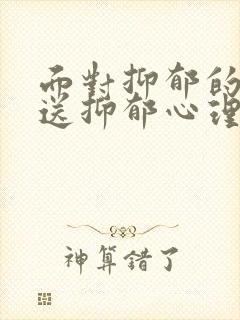 而對抑郁的
送抑郁心理
神算錯了